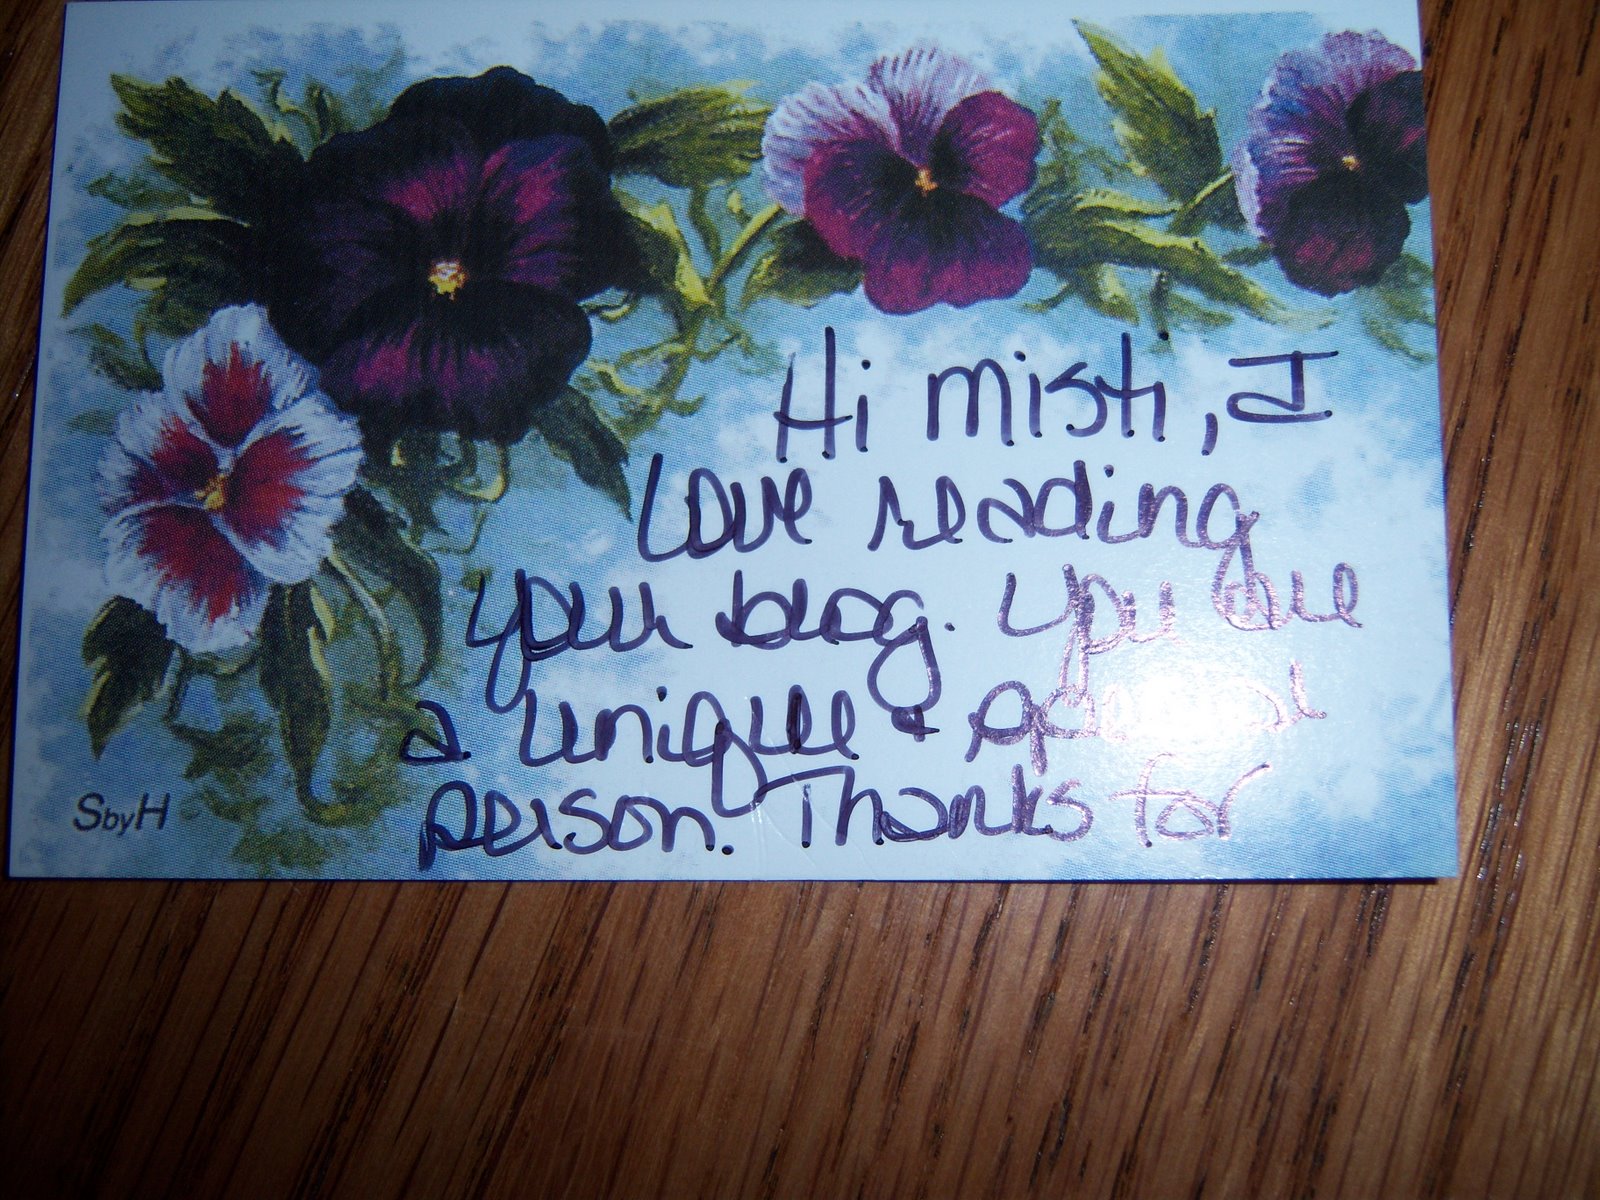 Hi Misti, I
Love reading
your blog. You are
a unique + special
person. Thanks for
SbyH